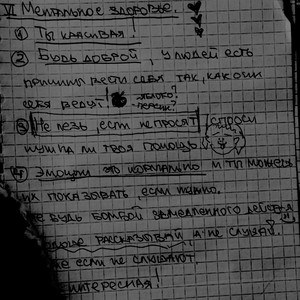 VI Ментальное здоровье.
① Ты красивая!
② Будь доброй, у людей есть
причины вести себя так, как они
себя ведут! яблоко?
персик?
③ Не лезь, если не просят, спроси
нужна ли твоя помощь.
④ Эмоции это нормально и ты можешь
их показывать, если нужно.
Не будь бомбой замедленного действия
рассказывай, а не слушай.
если не слушают.
интересная!